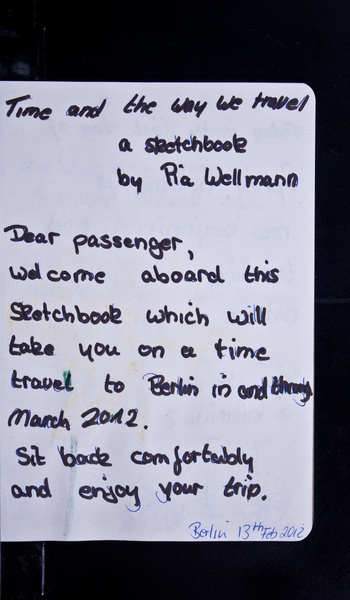 Time and the way we travel
a sketchbook
by Pia Wellmann
Dear passenger,
welcome aboard this
Sketchbook which will
take you on a time
travel to Berlin in and through
March 2012.
Sit back comfortably
and enjoy your trip.
Berlin 13th Feb 2012